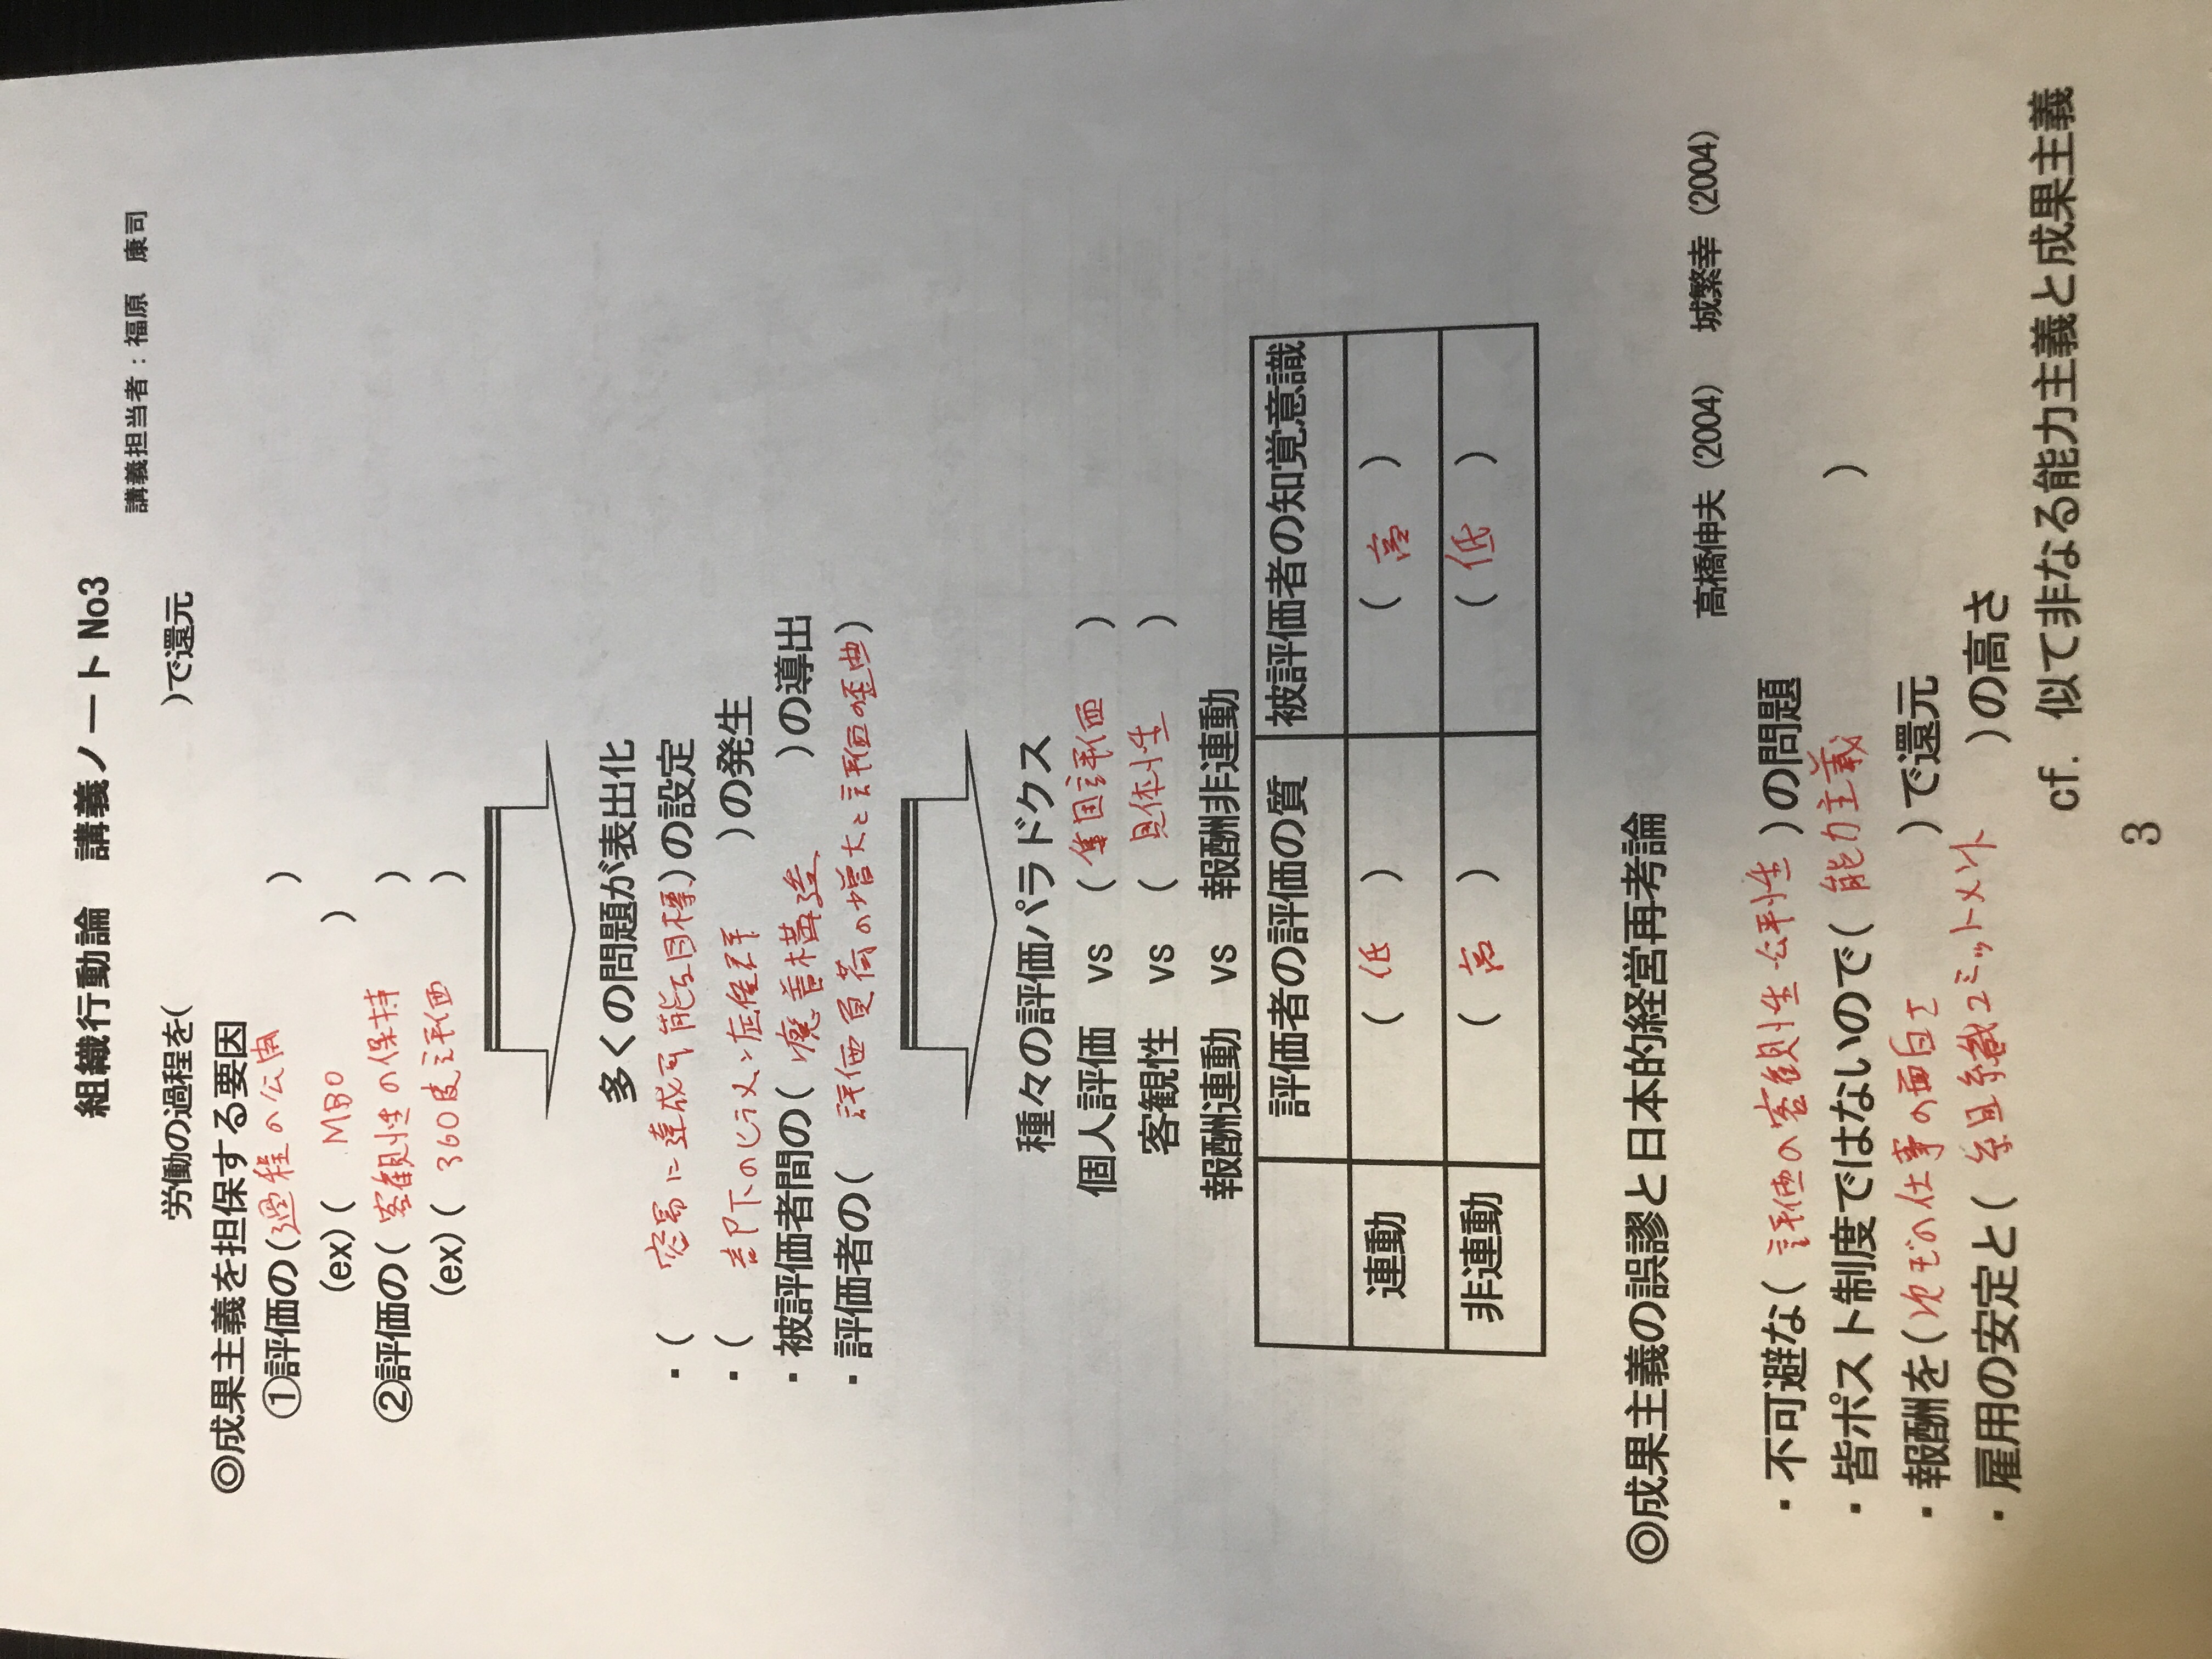 組織行動論　講義ノート No3
講義担当者：福原　康司
労働の過程を(　　　　　　　)で還元
◎成果主義を担保する要因
①評価の(過程の公開　　　)
(ex)(　MBO　　　)
②評価の(客観性の保持　　)
(ex)(　360度評価　　)
多くの問題が表出化
・(　容易に達成可能な目標)の設定
・(　部下のヒラメン症候群　)の発生
・被評価者間の(　癒着構造　)の導出
・評価者の(　評価負荷の増大と評価の歪曲)
種々の評価パラドクス
個人評価　vs　(集団評価　)
客観性　vs　(　具体性　)
報酬連動　vs　報酬非連動
評価者の評価の質　被評価者の知覚意識
連動　(　低　)　(　高　)
非連動　(　高　)　(　低　)
◎成果主義の誤謬と日本的経営再考論
高橋伸夫（2004）　城繁幸（2004）
・不可避な(　評価の客観性・公平性　)の問題
・皆ポスト制度ではないので(　能力主義　　　　)
・報酬を(次ぎの仕事の面白さ　　)で還元
・雇用の安定と(　組織コミットメント　)の高さ
cf. 似て非なる能力主義と成果主義
3